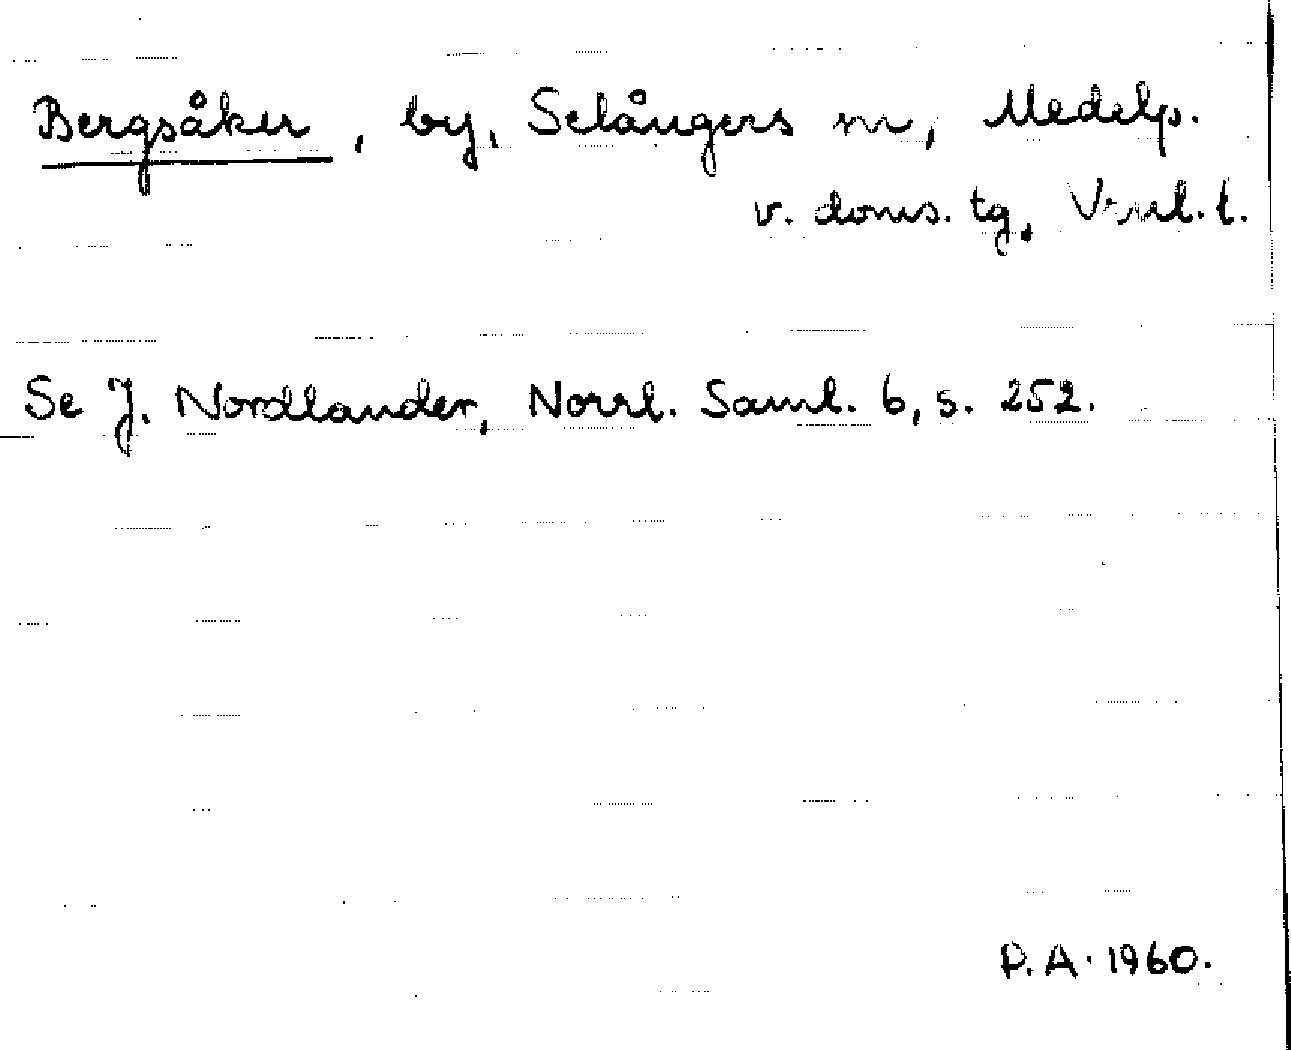 Bergsåker, by, Selångers sn, Medelp.
v. doms. tg, Vnl. l.
Se J. Nordlander, Norrl. Saml. 6, s. 252.
P.A. 1960.